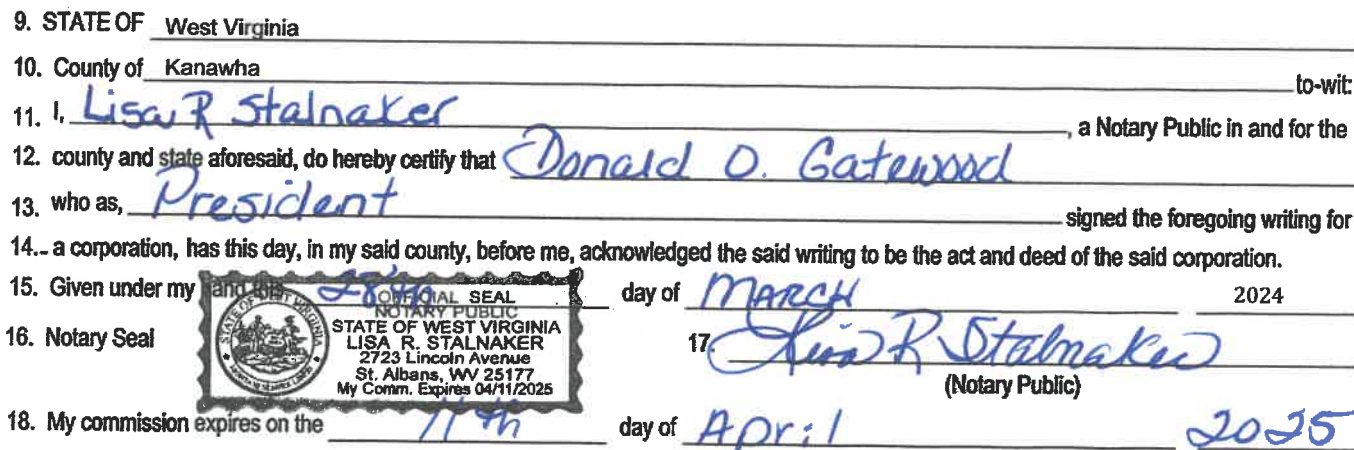 9. STATE OF West Virginia
10. County of Kanawha to-wit:
11. I, Lisa R Stalnaker, a Notary Public in and for the
12. county and state aforesaid, do hereby certify that Donald O. Gatewood
13. who as, President signed the foregoing writing for
14. a corporation, has this day, in my said county, before me, acknowledged the said writing to be the act and deed of the said corporation.
15. Given under my hand this 28th day of MARCH 2024
OFFICIAL SEAL
NOTARY PUBLIC
STATE OF WEST VIRGINIA
LISA R. STALNAKER
2723 Lincoln Avenue
St. Albans, WV 25177
My Comm. Expires 04/11/2025
STATE OF WEST VIRGINIA
16. Notary Seal 17. Lisa R Stalnaker
(Notary Public)
18. My commission expires on the 11th day of April 2025